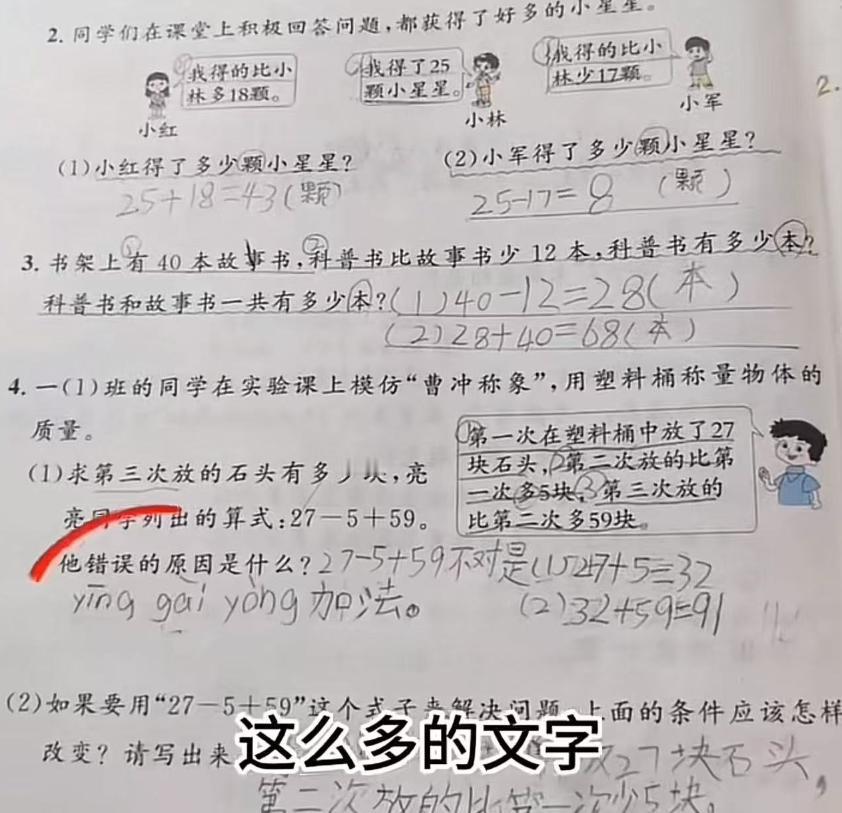 2. 同学们在课堂上积极回答问题,都获得了好多的小星星。
我得的比小
林多18颗。
小红
我得了25
颗小星星。
小林
我得的比小
林少17颗。
小军
2.
(1)小红得了多少颗小星星?
25+18=43(颗)
(2)小军得了多少颗小星星?
25-17=8 (颗)
3. 书架上有 40 本故事书,科普书比故事书少 12 本,科普书有多少本?
科普书和故事书一共有多少本?(1)40-12=28(本)
(2)28+40=68(本)
4. 一(1)班的同学在实验课上模仿“曹冲称象”,用塑料桶称量物体的
质量。
第一次在塑料桶中放了27
块石头,第二次放的比第
一次多5块,第三次放的
比第二次多59块。
(1)求第三次放的石头有多少块,亮
亮同学列出的算式:27-5+59。
他错误的原因是什么?27-5+59不对是(1)27+5=32
yīng gāi yòng 加法。
(2)32+59=91
(2)如果要用“27-5+59”这个式子来解决问题,上面的条件应该怎样
改变?请写出来
27块石头,
第二次放的比第一次少5块。
这么多的文字